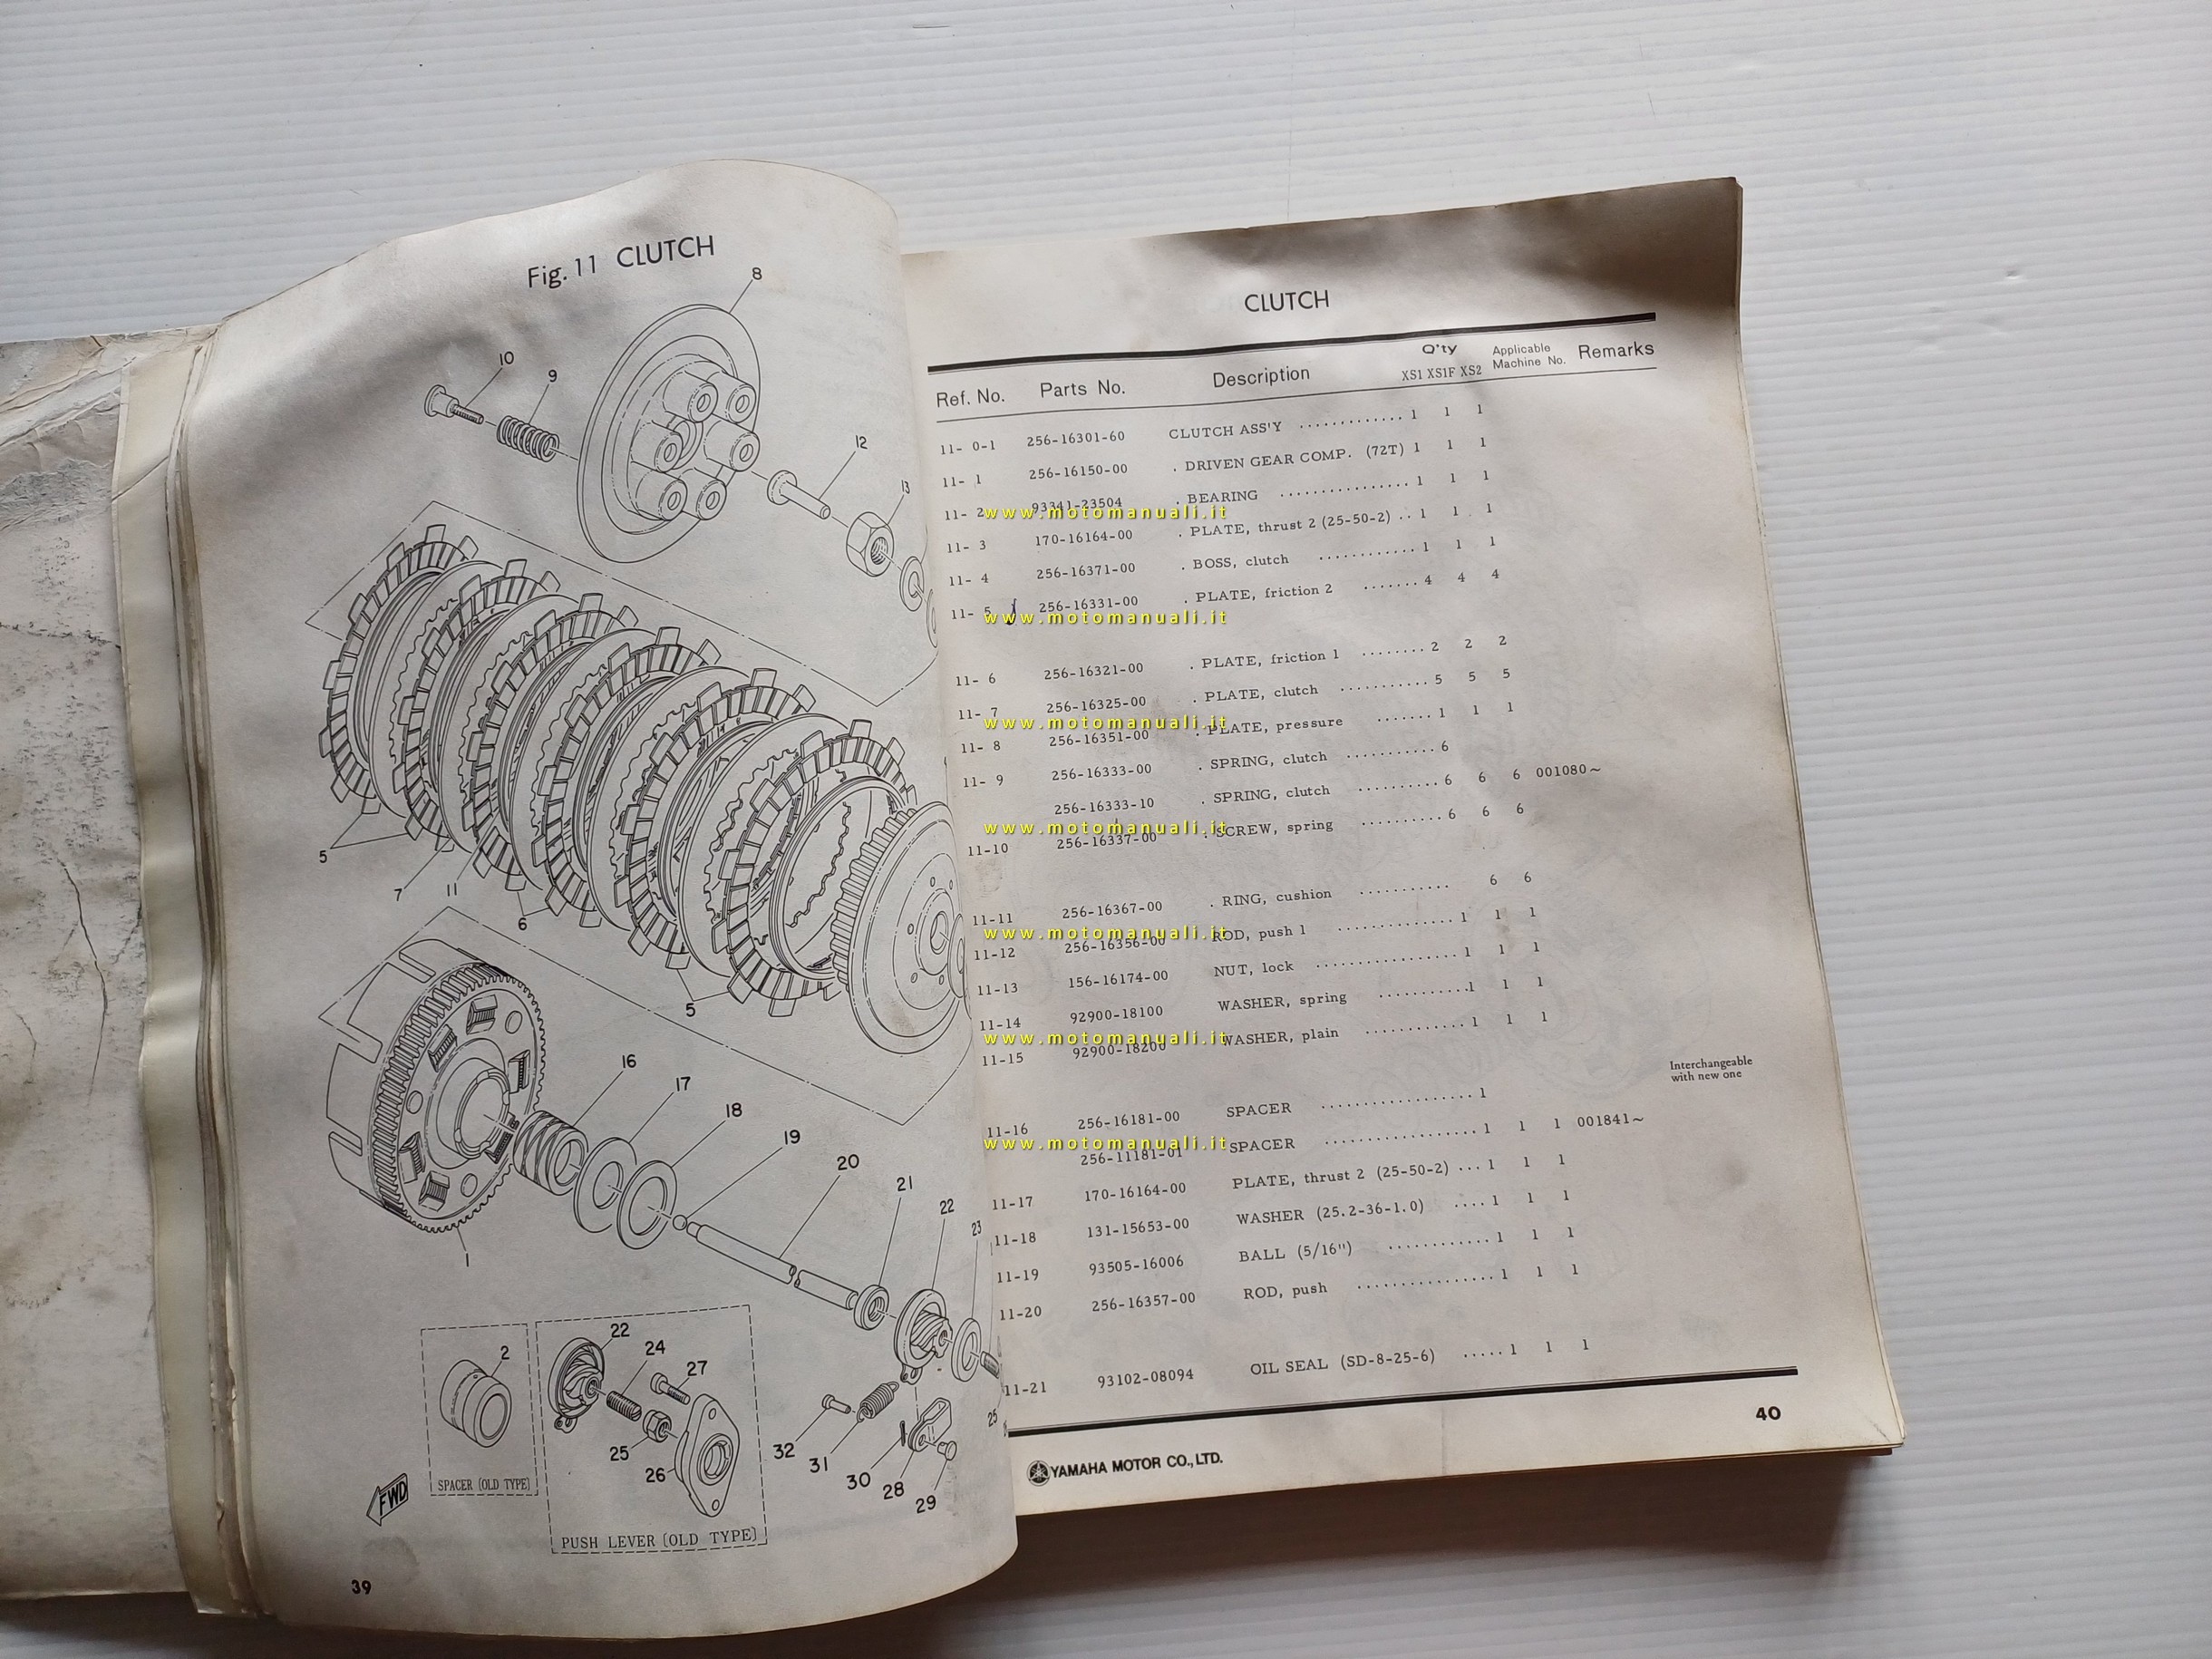 Fig. 11 CLUTCH
8
10
9
12
13
5
7
11
6
5
16
17
18
19
20
21
22
23
1
2
22
24
27
25
26
32
31
30
28
29
25
SPACER (OLD TYPE)
PUSH LEVER (OLD TYPE)
FWD
39
CLUTCH
Ref. No. Parts No. Description Q'ty XS1 XS1F XS2 Applicable Machine No. Remarks
11- 0-1 256-16301-60 CLUTCH ASS'Y ............. 1 1 1
11- 1 256-16150-00 . DRIVEN GEAR COMP. (72T) 1 1 1
11- 2 93341-23504 . BEARING ................ 1 1 1
www.motomanuali.it
11- 3 170-16164-00 . PLATE, thrust 2 (25-50-2) .. 1 1 1
11- 4 256-16371-00 . BOSS, clutch ............ 1 1 1
11- 5 256-16331-00 . PLATE, friction 2 ....... 4 4 4
www.motomanuali.it
11- 6 256-16321-00 . PLATE, friction 1 ........ 2 2 2
11- 7 256-16325-00 . PLATE, clutch ........... 5 5 5
www.motomanuali.it
11- 8 256-16351-00 . PLATE, pressure ....... 1 1 1
11- 9 256-16333-00 . SPRING, clutch ........... 6
256-16333-10 . SPRING, clutch .......... 6 6 6 001080~
www.motomanuali.it
11-10 256-16337-00 . SCREW, spring .......... 6 6 6
11-11 256-16367-00 . RING, cushion ........... 6 6
www.motomanuali.it
11-12 256-16356-00 ROD, push 1 ............... 1 1 1
11-13 156-16174-00 NUT, lock .................. 1 1 1
11-14 92900-18100 WASHER, spring ........... 1 1 1
www.motomanuali.it
11-15 92900-18200 WASHER, plain ............. 1 1 1
Interchangeable
with new one
11-16 256-16181-00 SPACER .................. 1
www.motomanuali.it
256-11181-01 SPACER .................... 1 1 1 001841~
11-17 170-16164-00 PLATE, thrust 2 (25-50-2) ... 1 1 1
11-18 131-15653-00 WASHER (25.2-36-1.0) .... 1 1 1
11-19 93505-16006 BALL (5/16") ............. 1 1 1
11-20 256-16357-00 ROD, push ................. 1 1 1
11-21 93102-08094 OIL SEAL (SD-8-25-6) ..... 1 1 1
YAMAHA MOTOR CO., LTD.
40